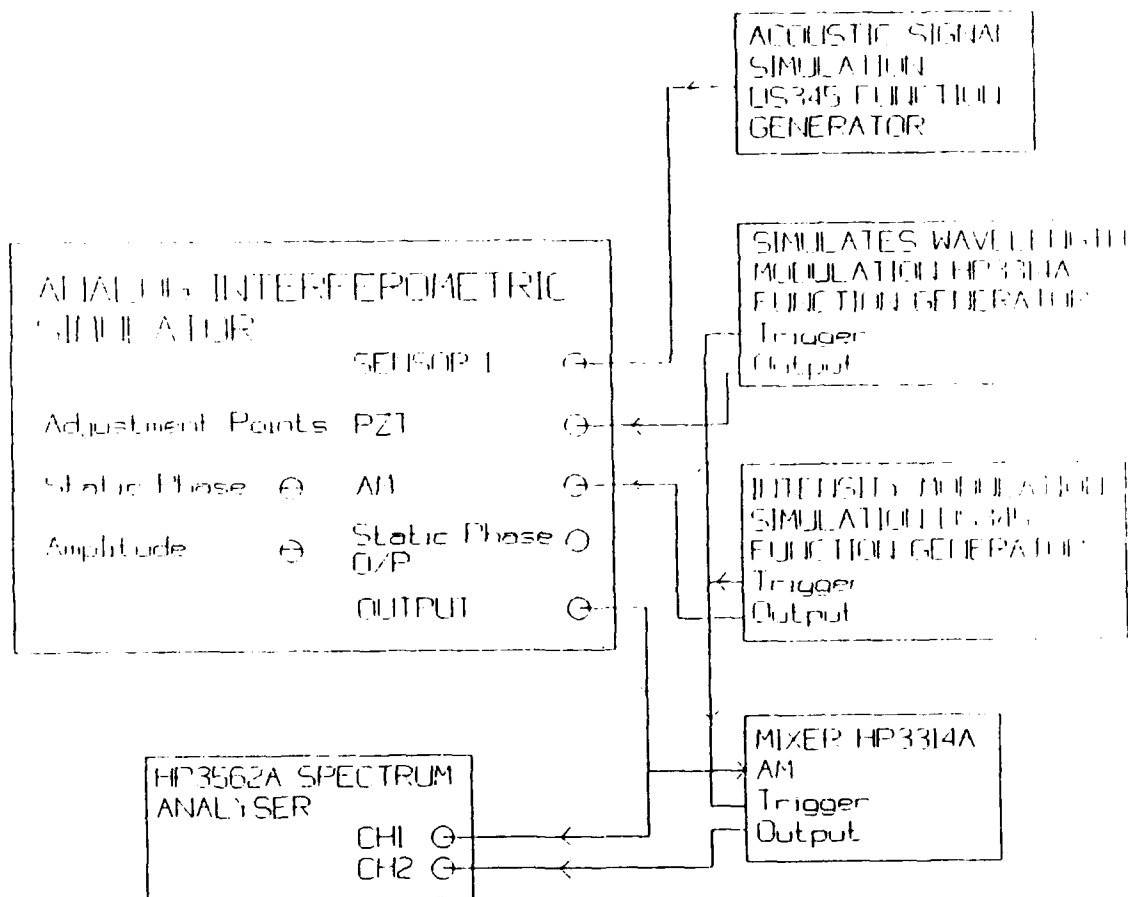 ACOUSTIC SIGNAL
SIMULATION
DS345 FUNCTION
GENERATOR
SIMULATES WAVELENGTH
MODULATION HP3314A
FUNCTION GENERATOR
Trigger
Output
ANALOG INTERFEROMETRIC
SIMULATOR
SENSOR 1
Adjustment Points PZT
Static Phase AM
Amplitude Static Phase
O/P
OUTPUT
INTENSITY MODULATION
SIMULATION DS345
FUNCTION GENERATOR
Trigger
Output
MIXER HP3314A
AM
Trigger
Output
HP3562A SPECTRUM
ANALYSER
CH1
CH2